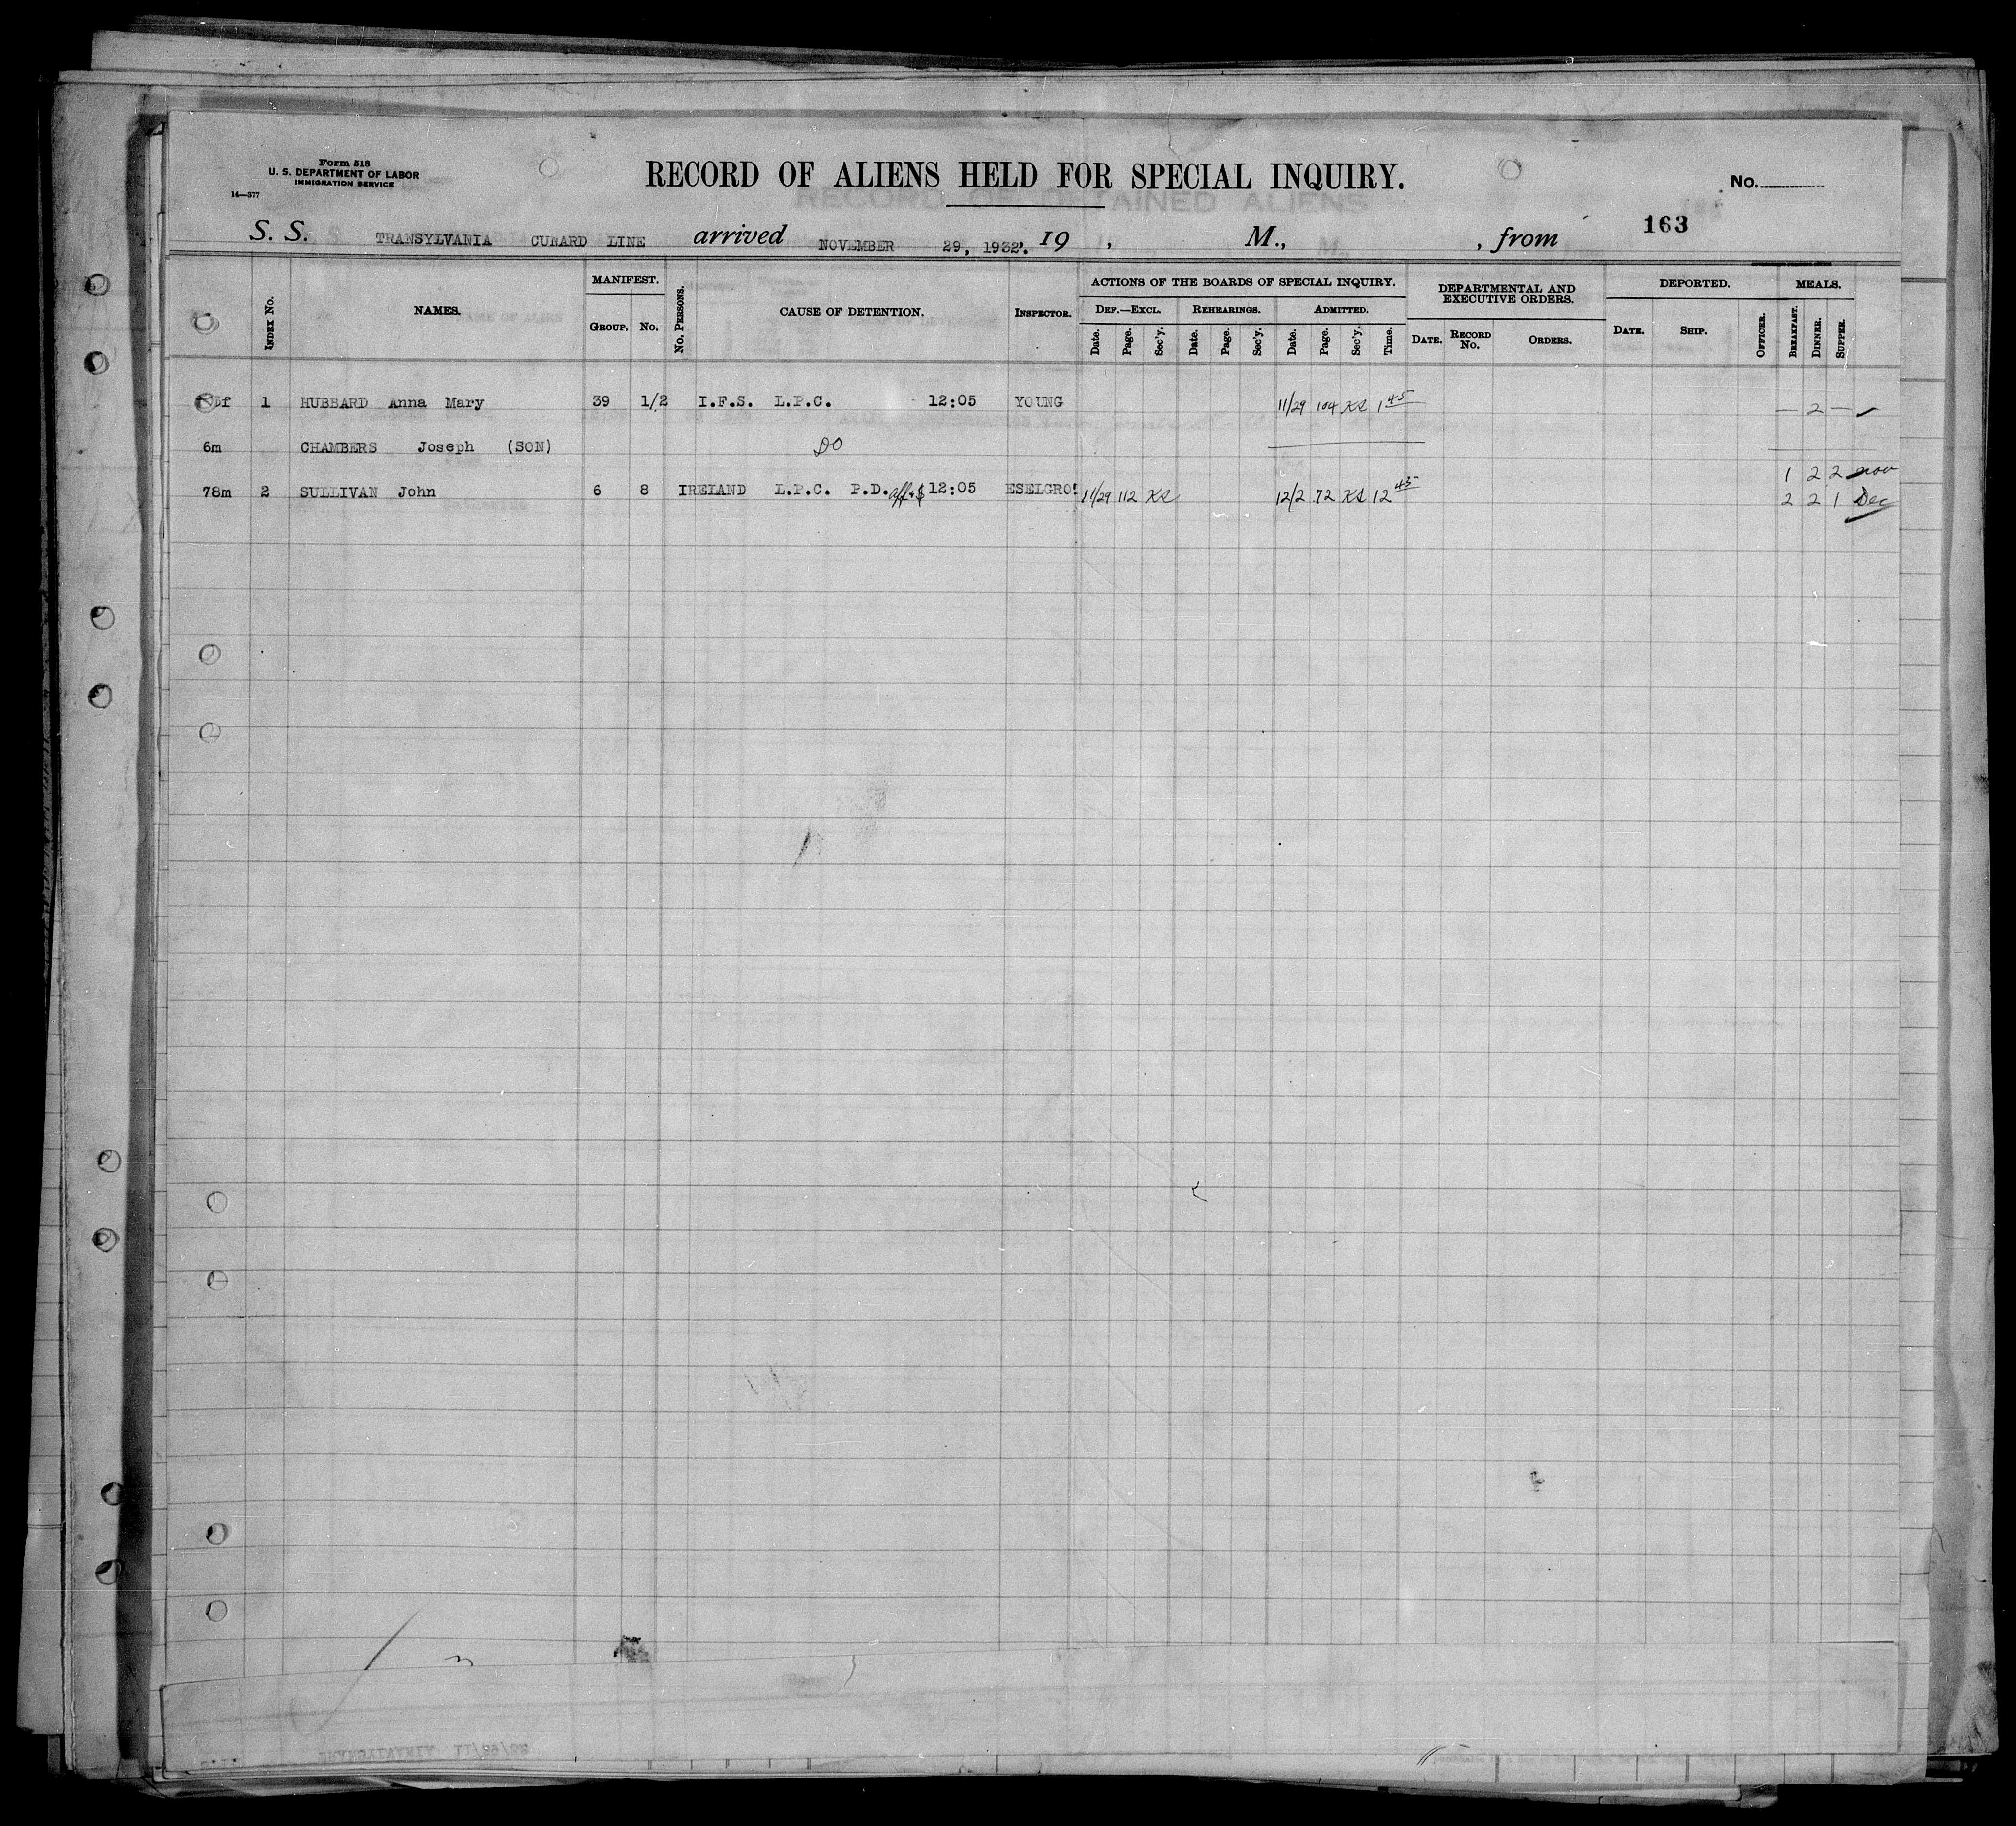 Form 518
U. S. DEPARTMENT OF LABOR
IMMIGRATION SERVICE
14—377
RECORD OF ALIENS HELD FOR SPECIAL INQUIRY.
No.
163
S. S. TRANSYLVANIA CUNARD LINE arrived NOVEMBER 29, 1932. 19 , M., , from
Index No. NAMES. MANIFEST. Group. No. No. Persons. CAUSE OF DETENTION. Inspector. ACTIONS OF THE BOARDS OF SPECIAL INQUIRY. DEPARTMENTAL AND EXECUTIVE ORDERS. DEPORTED. MEALS.
Def.—Excl. Rehearings. Admitted.
Date. Page. Sec'y. Date. Page. Sec'y. Date. Page. Sec'y. Time. Date. Record No. Orders. Date. Ship. Officer. Breakfast. Dinner. Supper.
1 HUBBARD Anna Mary 39 1/2 I.F.S. L.P.C. 12:05 YOUNG 11/29 104 KS 1 45 — 2 —
6m CHAMBERS Joseph (SON) DO
1 2 2 nov
78m 2 SULLIVAN John 6 8 IRELAND L.P.C. P.D. aff+$ 12:05 ESELGRO 11/29 112 KS 12/2 72 KS 12 45
2 2 1 Dec